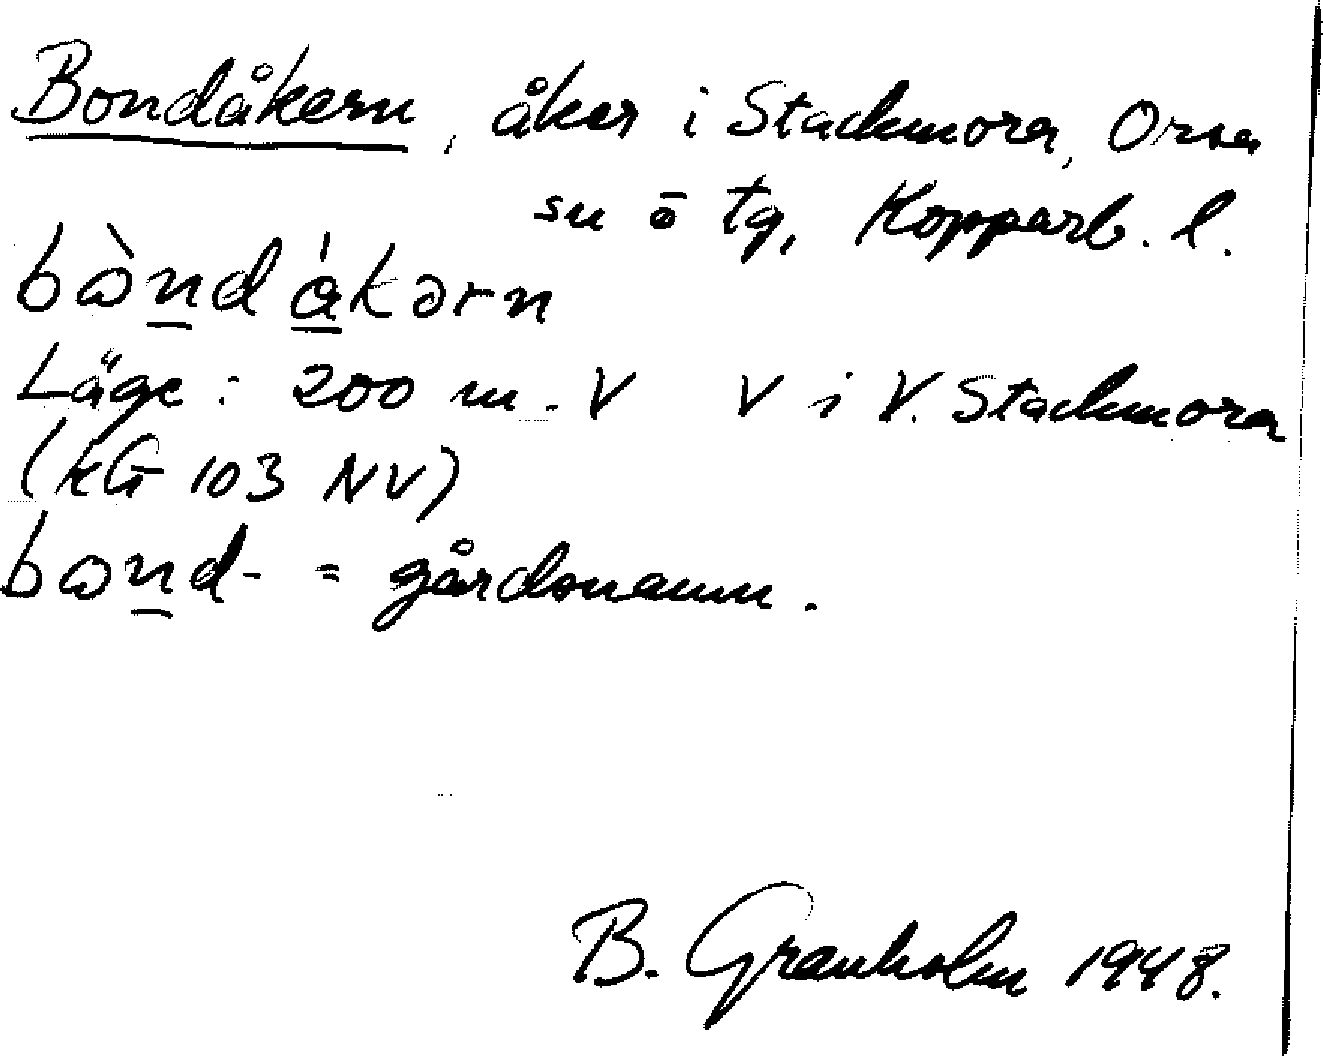 Bondåkern, åker i Stackmora, Orsa
sn o tg, Kopparb. l.
bὼndákərn
Läge: 200 m. V V i V. Stackmora
(KG 103 NV)
bωnd- = gårdsnamn.
B. Granholm 1948.